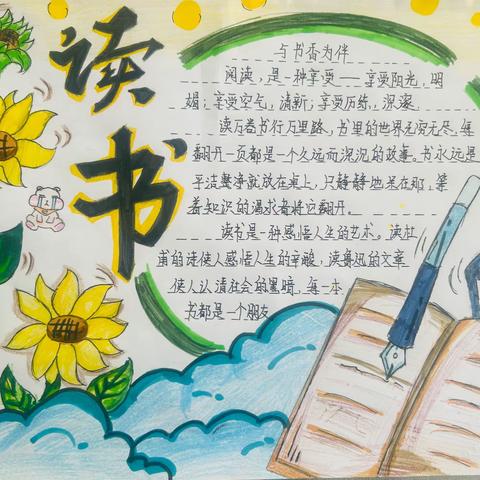 读书
与书香为伴
阅读，是一种享受——享受阳光，明
媚；享受空气，清新；享受历练，深邃。
读万卷书行万里路，书里的世界无穷无尽，每
翻开一页都是一个久远而深沉的故事。书永远是
平洁整净就放在桌上，只静静地呆在那，等
着知识的渴求者将它翻开。
读书是一种感悟人生的艺术。读杜
甫的诗使人感悟人生的辛酸，读鲁迅的文章
使人认清社会的黑暗，每一本
书都是一个朋友